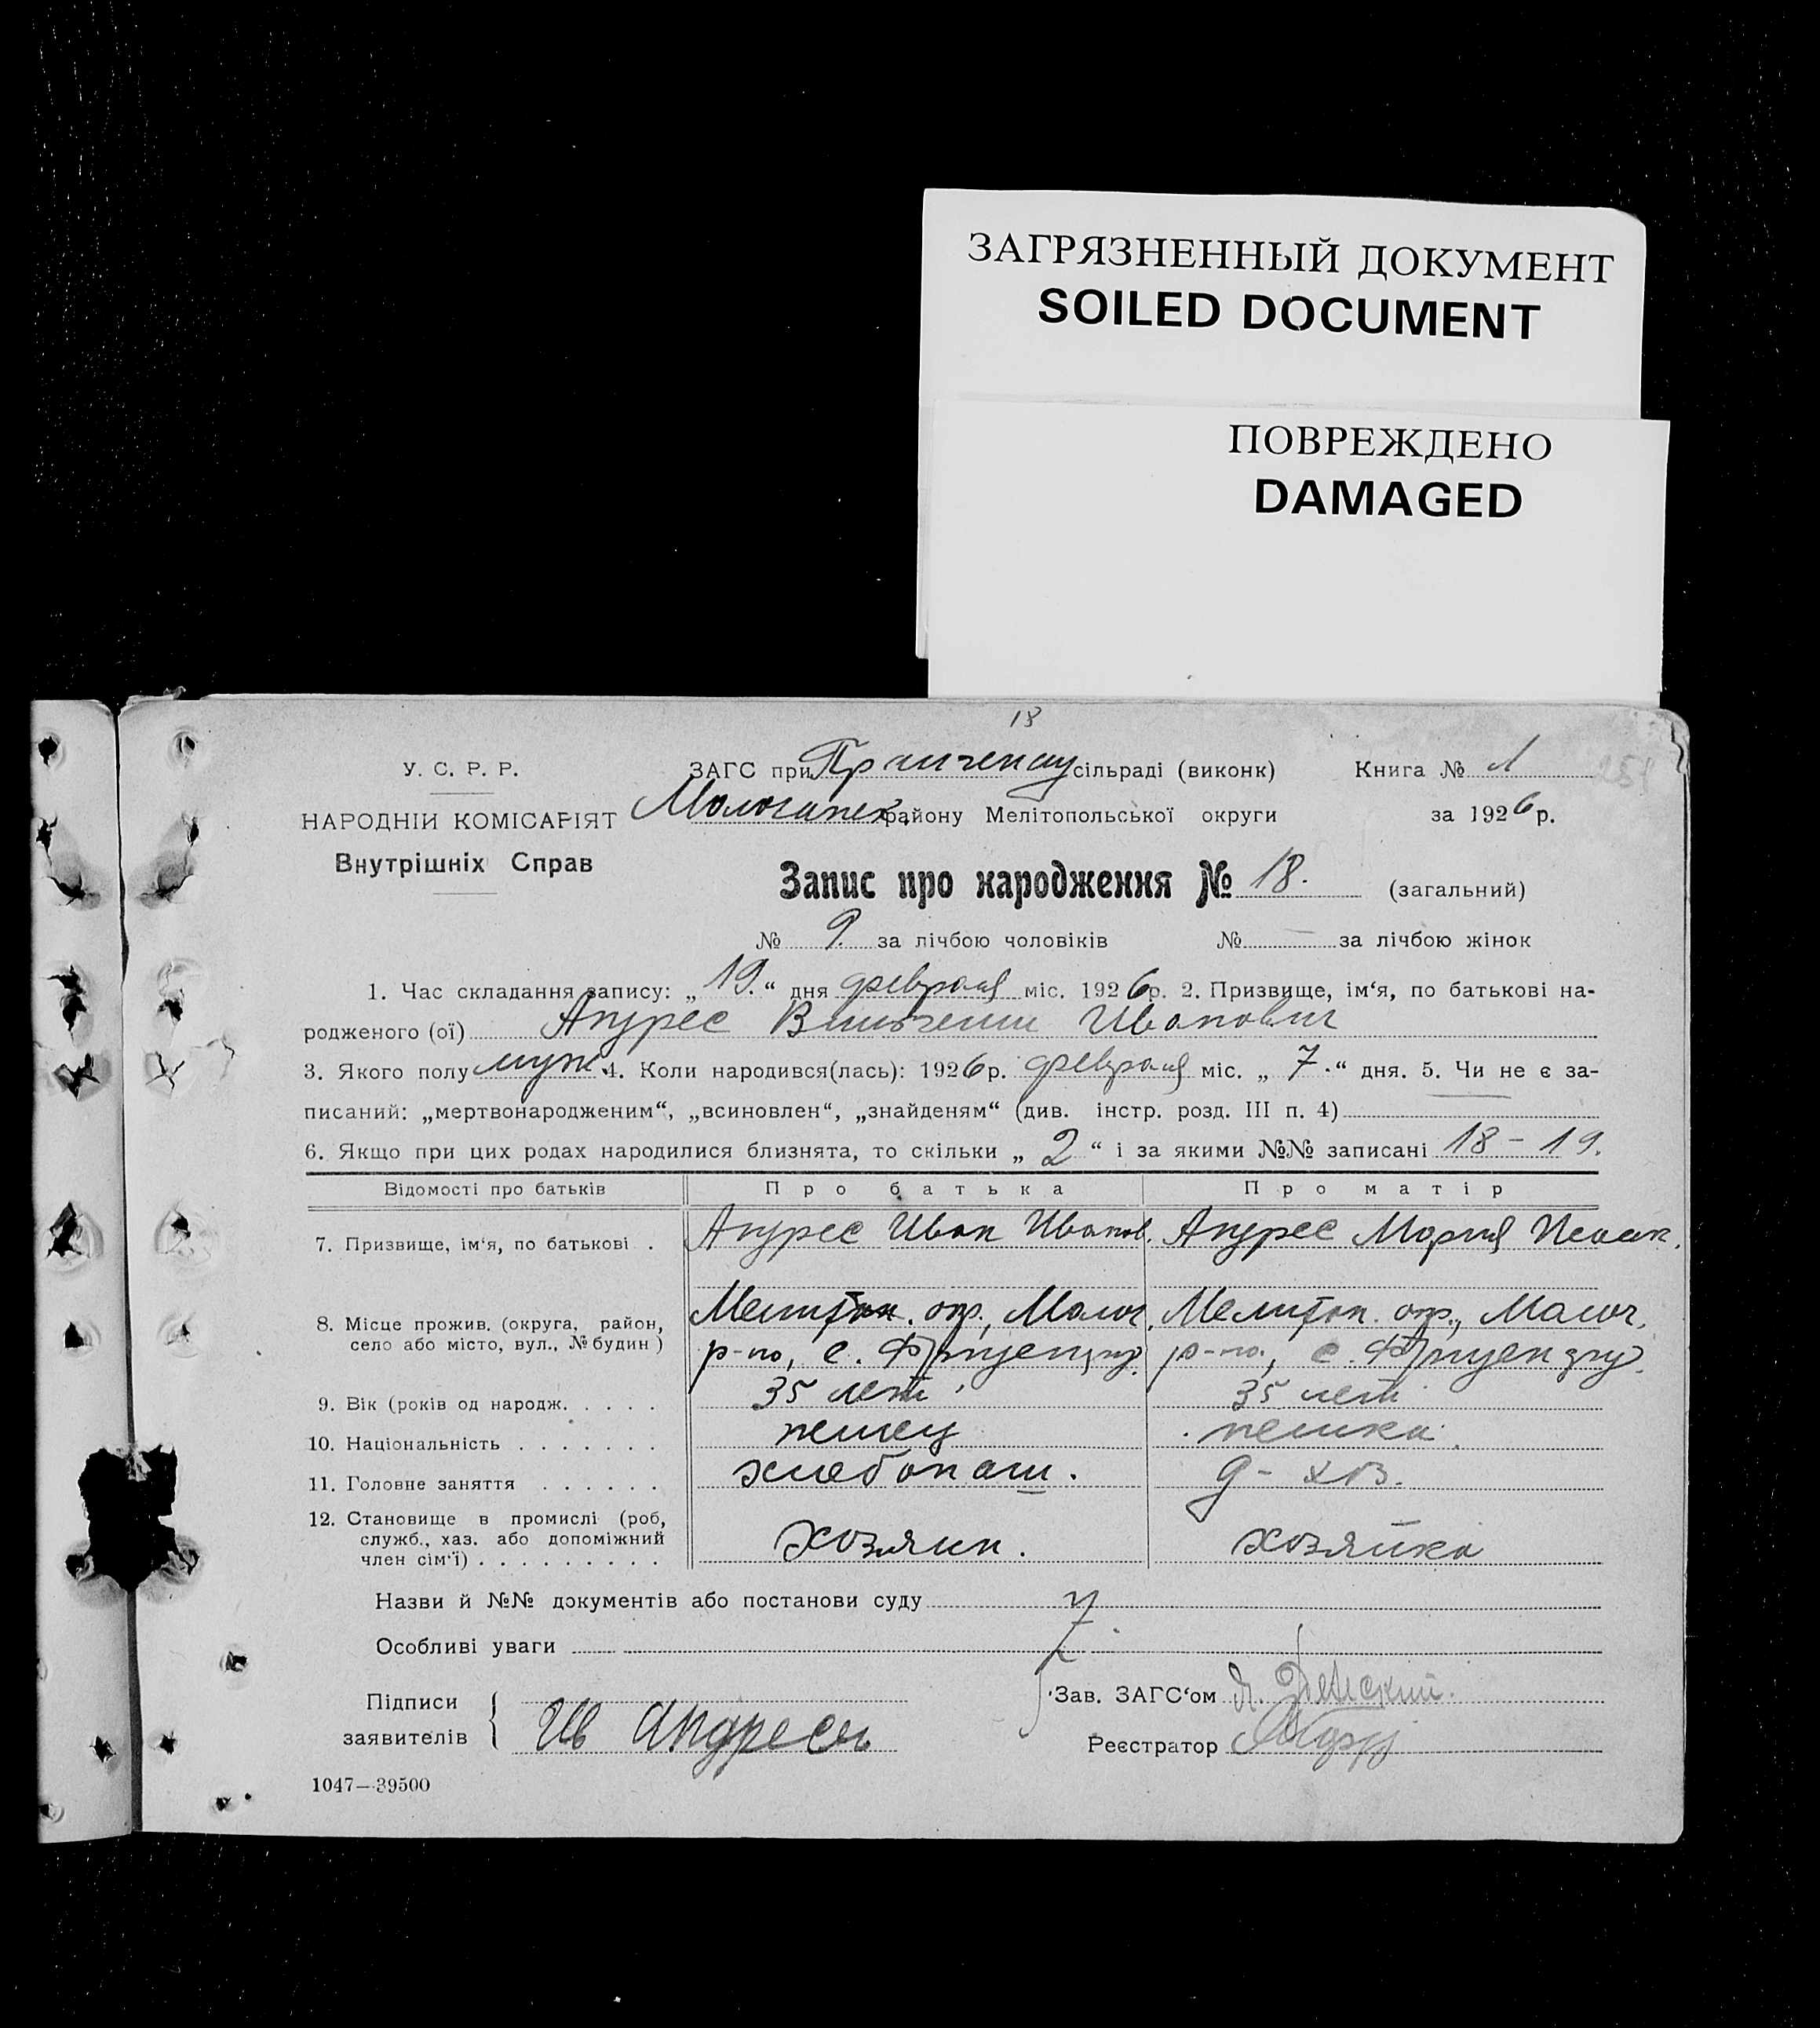 ЗАГРЯЗНЕННЫЙ ДОКУМЕНТ
SOILED DOCUMENT
ПОВРЕЖДЕНО
DAMAGED
18
У. С. Р. Р.
ЗАГС при сільраді (виконк)
Книга № 1
НАРОДНІЙ КОМІСАРІЯТ
району Мелітопольської округи
за 1926 р.
Внутрішніх Справ
Запис про народження № 18. (загальний)
№ 9. за лічбою чоловіків № — за лічбою жінок
1. Час складання запису: „19.“ дня февраля міс. 1926 р. 2. Призвище, ім‘я, по батькові на-
родженого (ої) Андрес Вильгельм Иванович
3. Якого полу муж. 4. Коли народився(лась): 1926 р. февраля міс. „7.“ дня. 5. Чи не є за-
писаний: „мертвонародженим“, „всиновлен“, „знайденям“ (див. інстр. розд. III п. 4)
6. Якщо при цих родах народилися близнята, то скільки „2“ і за якими №№ записані 18 – 19.
Відомості про батьків
Про батька
Про матір
7. Призвище, ім‘я, по батькові . Андрес Иван Иванов. Андрес Мария
8. Місце прожив. (округа, район, Мелитоп. окр., Молоч. Мелитоп. окр., Молоч.
село або місто, вул., № будин ) р-на, с. р-на, с.
9. Вік (років од народж. . . . . 35 лет 35 лет
10. Національність . . . . . . . немец немка.
11. Головне заняття . . . . . . хлебопаш. д - хоз.
12. Становище в промислі (роб,
служб., хаз. або допоміжний хозяин. хозяйка
член сім‘ї) . . . . . . . . .
Назви й №№ документів або постанови суду
Особливі уваги
Підписи
заявителів
Ив Андресъ
Зав. ЗАГС‘ом
Реєстратор
1047—39500